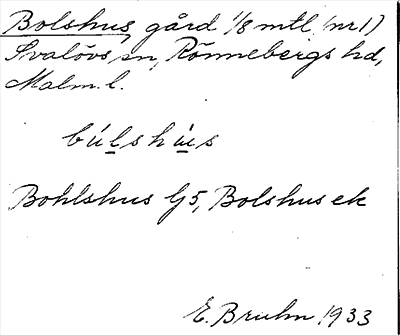 Bolshus, gård 1/8 mtl (nr 1)
Svalövs sn, Rönnebergs hd,
Malm. l.
búlshùs
Bohlshus Gj5, Bolshus ek
E. Bruhn 1933